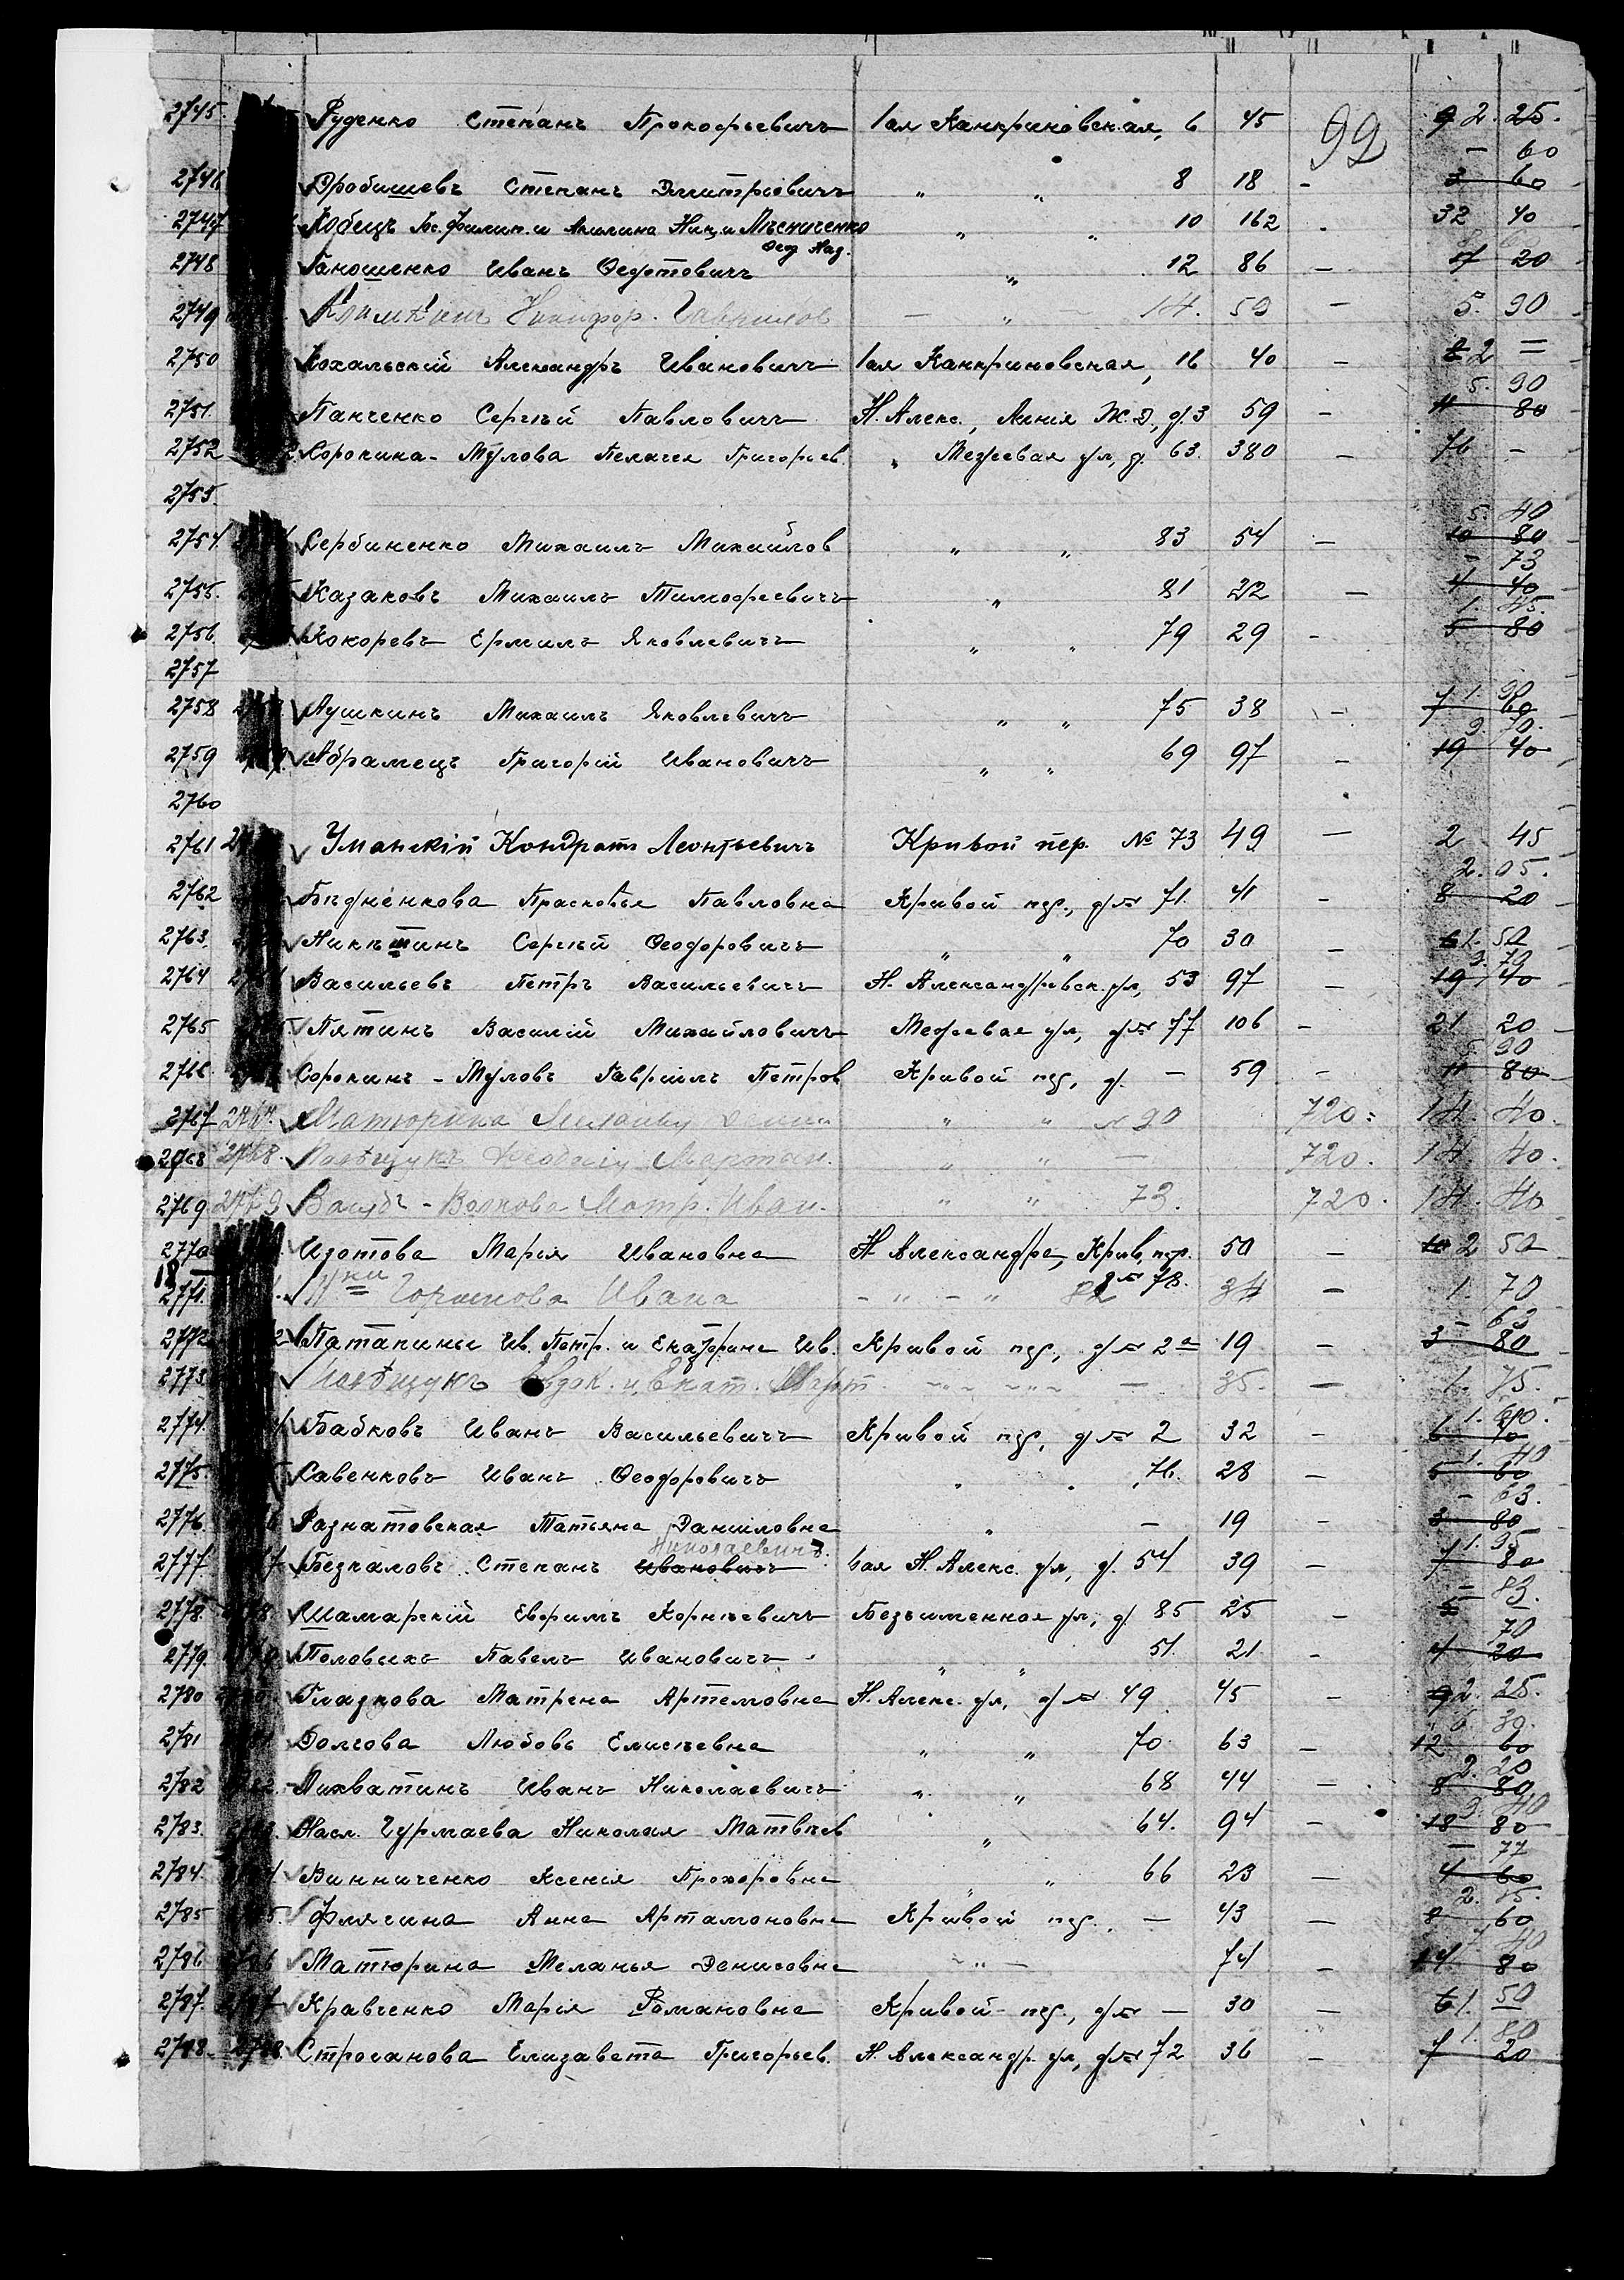 99
2745. Руденко Степанъ Прокофьевичъ 1ая Канкриновская, 6 45 9 2. 25.
— 60
2746 Дробишевъ Степанъ Дмитріевичъ " " 8 18 - 3 60
2747 Кобецъ Филип. и Акилина Ник. и Мѣсниченко " " 10 162 - 32 40
2748 Ганошенко Иванъ Федотовичъ " 12 86 — 17 20
2749 Никифор. Гаврилов — " 14. 59 — 5. 90
2750 Кохальскій Александръ Ивановичъ 1ая Канкриновская, 16 40 — 8 2 =
5. 90
2751. Панченко Сергѣй Павловичъ Н. Алекс., Линія Ж. Д., д. 3 59 — 11 80
2752 Сорокина-Мулова Пелагея Григорьев. " Межевая ул, д. 63. 380 — 76 -
2753.
5. 40
2754. Сербиненко Михаилъ Михайлов " " 83 54 — 10 80
- 73
2755. Казаковъ Михаилъ Тимофеевичъ " 81 22 — 4 40
1. 45.
2756. Кокоревъ Ермилъ Яковлевичъ " " 79 29 - 5 80
2757
1. 90
2758 Лушкинъ Михаилъ Яковлевичъ " " 75 38 — 7 60
9. 70.
2759 Абрамецъ Григорій Ивановичъ " " 69 97 — 19 40
2760
2761 Уманскій Кондратъ Леонтьевичъ Кривой пер. № 73 49 — 2 45
2. 05.
2762 Бѣдненкова Прасковья Павловна Кривой пер., д № 71. 41 - 8 20
2763. Никитинъ Сергѣй Феодоровичъ " " 70 30 — 6 1. 50
9. 70
2764 Васильевъ Петръ Васильевичъ Н. Александровск. ул, 53 97 — 19 40
2765 Пятинъ Василій Михайловичъ Межевая ул, д № 77 106 - 21 20
5 90
2766 Сорокинъ-Муловъ Гавріилъ Петров Кривой пер, д. — 59 - 11 80
2767 2767. Матюрина " " № 90 720. 14. 40.
2768 2768. " " — 720. 14 40.
2769 2769 - Волкова Матр. Иван. " " 73. 720. 14. 40
2770 Изотова Марія Ивановна Н. Александра, Крив. пер. 50 — 10 2 50
д № 78.
18 —
2771. Н-ки Горшкова Ивана - " - " 82 34 — 1. 70
- 63
2772 Патапины Ив. Петр. и Екатерина Ив. Кривой пер, д № 2а 19 — 3 80
2773. Евдок. и Екат. Март. — 35. — 1. 75.
1. 60.
2774. Бабковъ Иванъ Васильевичъ Кривой пер, д № 2 32 - 6 40
1. 40
2775. Савенковъ Иванъ Феодоровичъ " " 76. 28 — 5 60
- 63.
2776. Разнатовская Татьяна Даниловна " — 19 - 3 80
Николаевичъ. 1. 95
2777 Безпаловъ Степанъ Ивановичъ 1ая Н. Алекс. ул, д. 54 39 — 7 80
- 83.
2778. Шамарскій Ефримъ Корнѣевичъ Безъименная ул, д. 85 25 — 5 —
70
2779. Половыхъ Павелъ Ивановичъ " " 51. 21. - 4 20
2780 Глазкова Матрена Артемовна Н. Алекс. ул, д № 49 45 — 9 2. 25.
6. 30.
2781 Долгова Любовь Елисѣевна " " 70 63 — 12 60
2. 20
2782 Лихватинъ Иванъ Николаевичъ " " 68 44 — 8 80
9. 40
2783. Насл. Чурмаева Николая Матвѣев " 64. 94 — 18 80
— 77
2784. Винниченко Ксенія Прохоровна " " 66 23 — 4 60
2. 15.
2785 Флягина Анна Артамоновна Кривой пер. — 43 — 8 60
7. 40
2786 Матюрина Меланья Денисовна - " - 74 — 14 80
2787. Кравченко Марія Романовна Кривой пер., д № — 30 — 6 1. 50
1. 80
2788. 2788. Строганова Елизавета Григорьев. Н. Александр. ул, д № 72 36 — 7 20